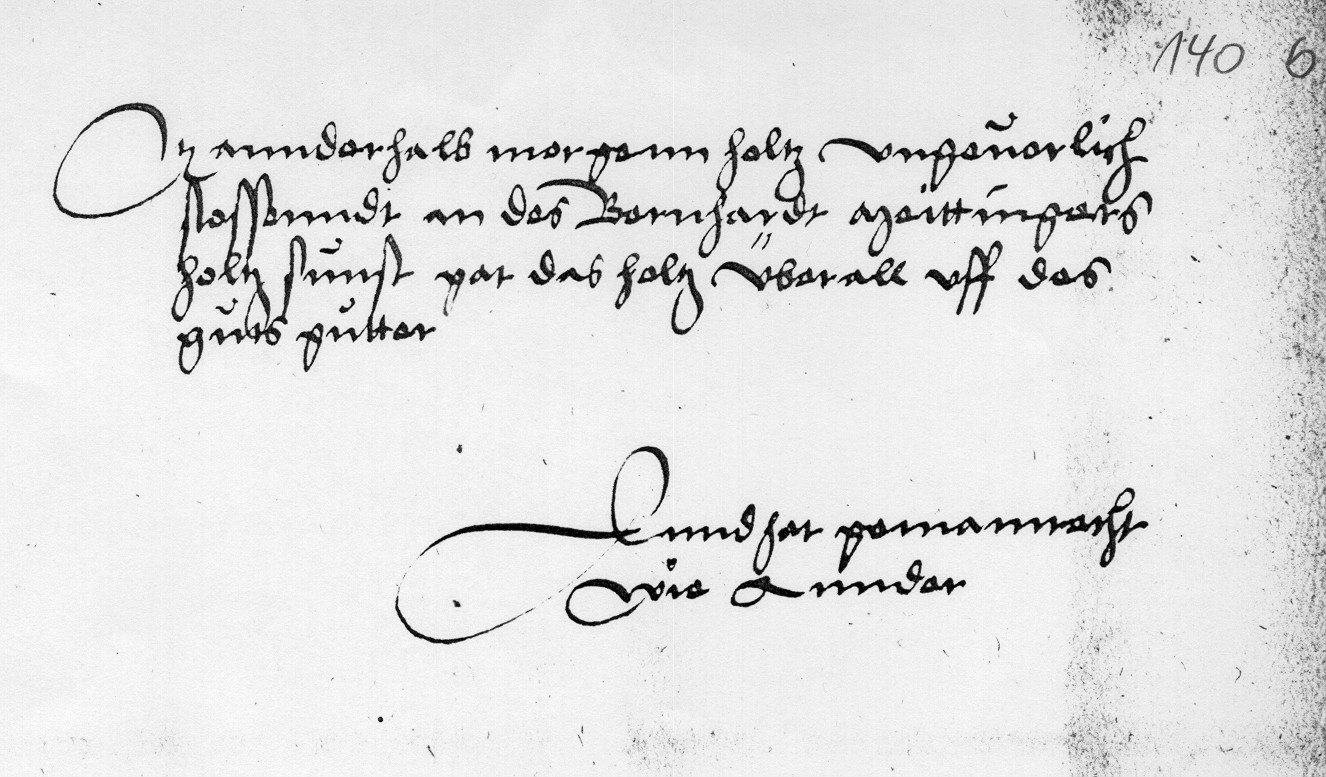 140 6
Itz annderhalb morgenn holtz vngeuerlich
stossenndt an des Bernhardt Meittingers
holtz sunst gat das holtz vberall vff des
guts gutter
Unnd hat gemainrecht
wie Annder